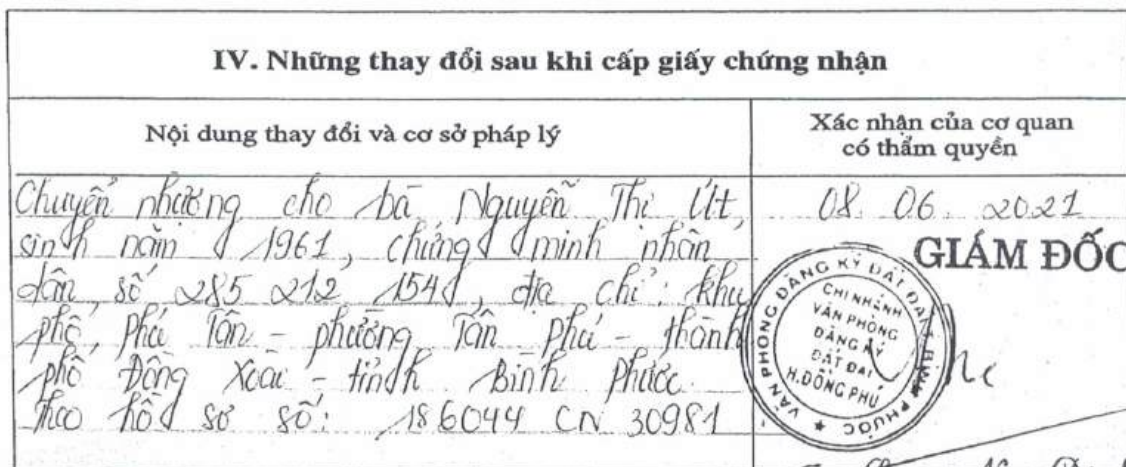 IV. Những thay đổi sau khi cấp giấy chứng nhận
Nội dung thay đổi và cơ sở pháp lý
Xác nhận của cơ quan
có thẩm quyền
Chuyển nhượng cho bà Nguyễn Thị Út,
sinh năm 1961, chứng minh nhân
dân số 285 212 154, địa chỉ: khu
phố Phú Tân - phường Tân Phú - thành
phố Đồng Xoài - tỉnh Bình Phước.
Theo hồ sơ số: 186044 CN 30981
08. 06. 2021
GIÁM ĐỐC
VĂN PHÒNG ĐĂNG KÝ ĐẤT ĐAI BÌNH PHƯỚC
CHI NHÁNH
VĂN PHÒNG
ĐĂNG KÝ
ĐẤT ĐAI
H.ĐỒNG PHÚ